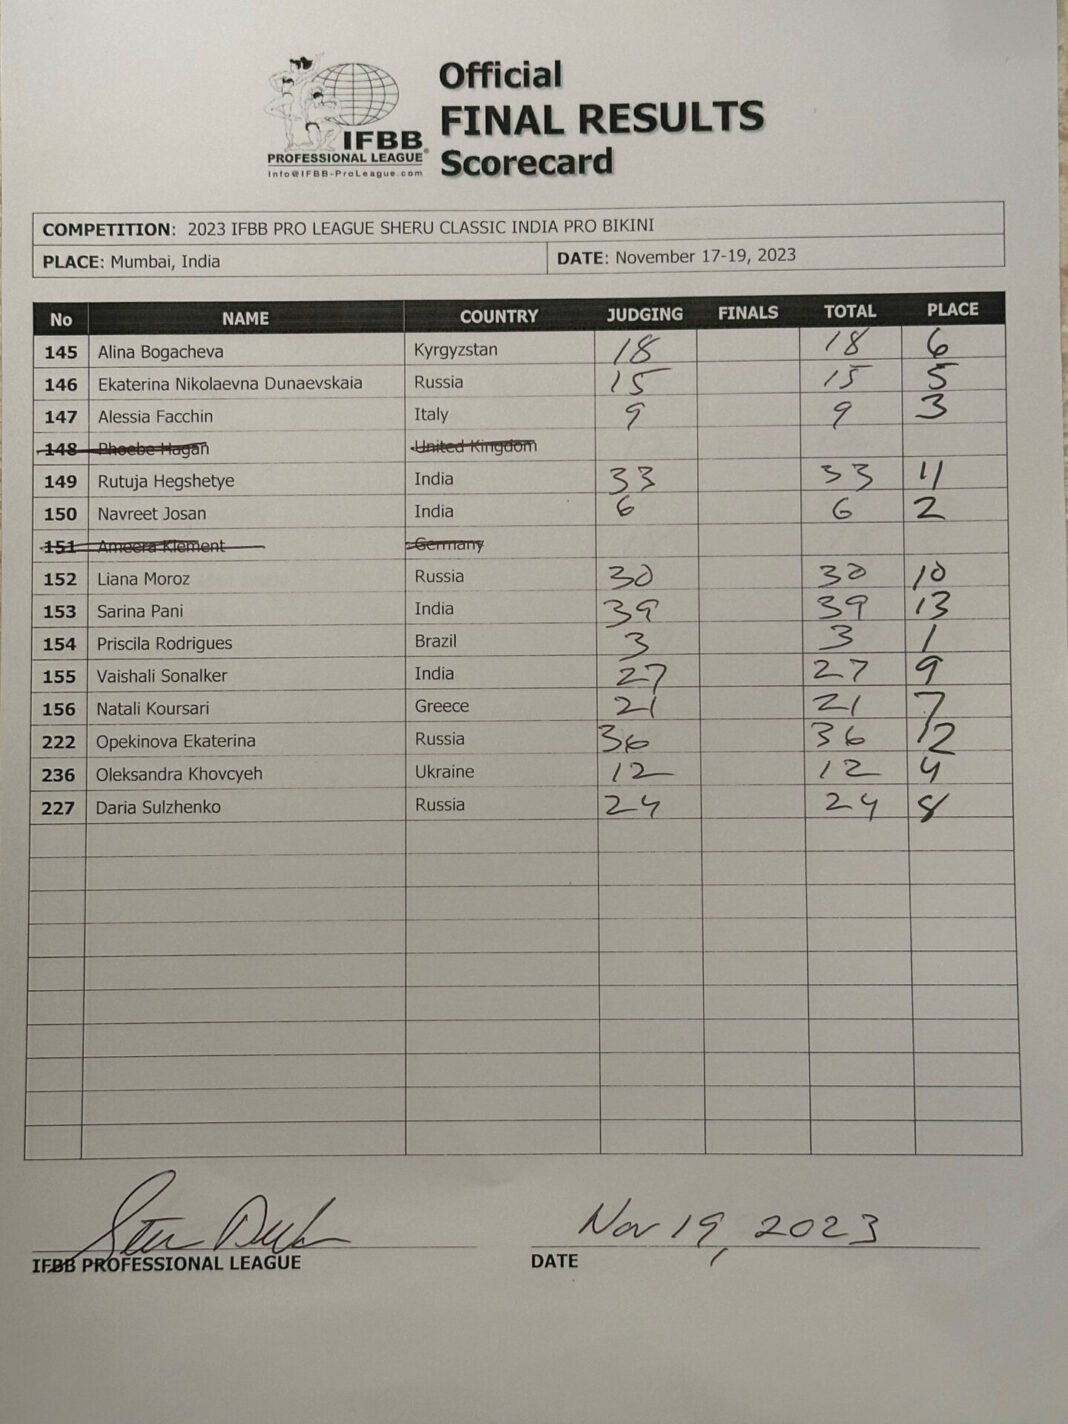 IFBB
PROFESSIONAL LEAGUE®
Info@IFBB-ProLeague.com
Official
FINAL RESULTS
Scorecard
COMPETITION: 2023 IFBB PRO LEAGUE SHERU CLASSIC INDIA PRO BIKINI
PLACE: Mumbai, India DATE: November 17-19, 2023
No NAME COUNTRY JUDGING FINALS TOTAL PLACE
145 Alina Bogacheva Kyrgyzstan 18 18 6
146 Ekaterina Nikolaevna Dunaevskaia Russia 15 15 5
147 Alessia Facchin Italy 9 9 3
148 Phoebe Hagan United Kingdom
149 Rutuja Hegshetye India 33 33 11
150 Navreet Josan India 6 6 2
151 Ameera Klement Germany
152 Liana Moroz Russia 30 30 10
153 Sarina Pani India 39 39 13
154 Priscila Rodrigues Brazil 3 3 1
155 Vaishali Sonalker India 27 27 9
156 Natali Koursari Greece 21 21 7
222 Opekinova Ekaterina Russia 36 36 12
236 Oleksandra Khovcyeh Ukraine 12 12 4
227 Daria Sulzhenko Russia 24 24 8
Nov 19, 2023
IFBB PROFESSIONAL LEAGUE DATE